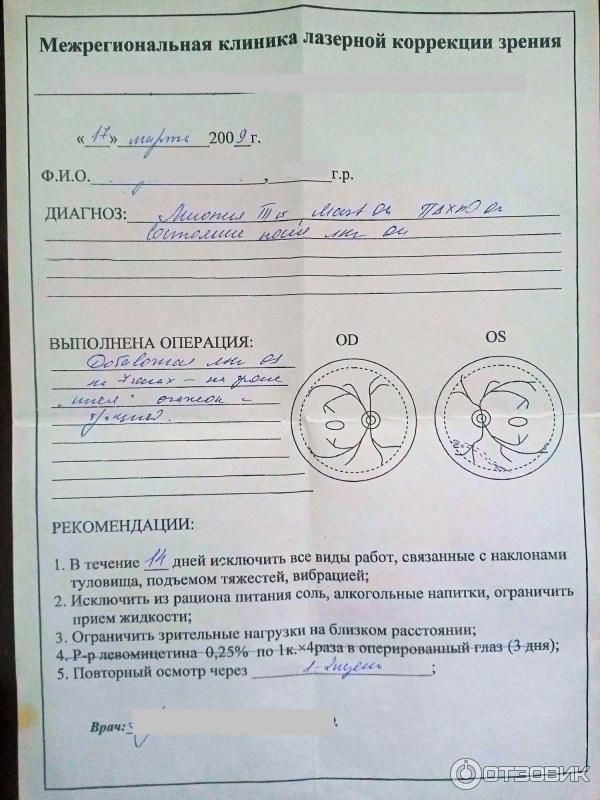 Межрегиональная клиника лазерной коррекции зрения
«17» марта 2009г.
Ф.И.О. , г.р.
ДИАГНОЗ: Миопия III ст, OU ПХРД OU
Состояние после ЛКС OU
ВЫПОЛНЕНА ОПЕРАЦИЯ: OD OS
Добавочная OS
на
РЕКОМЕНДАЦИИ:
1. В течение 14 дней исключить все виды работ, связанные с наклонами
туловища, подъемом тяжестей, вибрацией;
2. Исключить из рациона питания соль, алкогольные напитки, ограничить
прием жидкости;
3. Ограничить зрительные нагрузки на близком расстоянии;
4. Р-р левомицетина 0,25% по 1к.×4раза в оперированный глаз (3 дня);
5. Повторный осмотр через 1-2 ;
Врач:
ОТЗОВИК